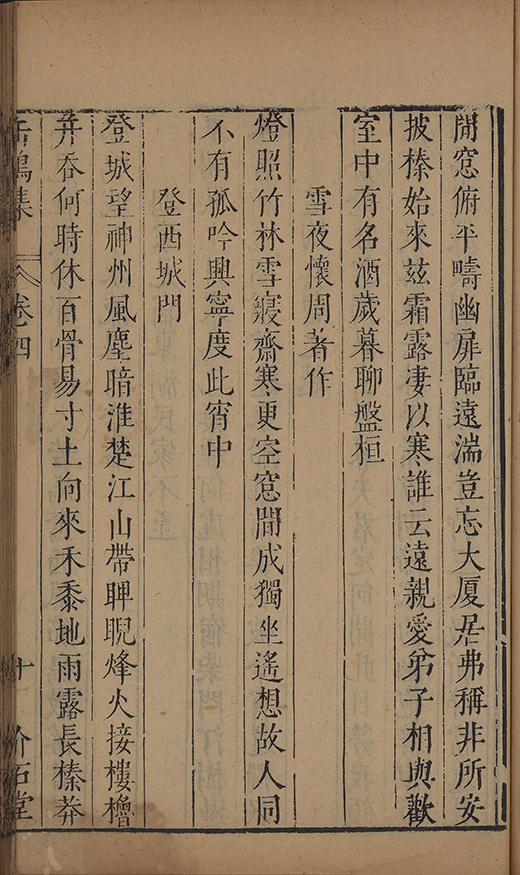 閒窓俯平疇幽扉臨遠湍豈忘大厦居弗稱非所安
披榛始來兹霜露凄以寒誰云遠親愛弟子相與歡
室中有名酒歲暮聊盤桓
雪夜懷周著作
燈照竹林雪寢齋寒更空窓間成獨坐遙想故人同
不有孤吟興寧度此宵中
登西城門
登城望神州風塵暗淮楚江山帶睥睨烽火接樓櫓
并吞何時休百骨易寸土向來禾黍地雨露長榛莽
缶鳴集 卷四 十 介石堂